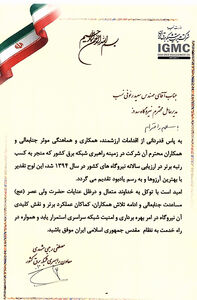 بسم الله الرحمن الرحیم
IGMC
جناب آقای مهندس سعید رئوفی نسب
مدیرعامل محترم نیروگاه
با سلام و احترام
به پاس قدردانی از اقدامات ارزشمند، همکاری و هماهنگی موثر جنابعالی و
همکاران محترم آن شرکت در زمینه راهبری شبکه برق کشور که منجر به کسب
رتبه برتر در ارزیابی سالانه نیروگاه های کشور در سال ۱۳۹۴ شد، این لوح تقدیر
با بهترین آرزوها و به رسم یادبود تقدیم می گردد.
امید است با توکل به خداوند متعال و درظل عنایات حضرت ولی عصر (عج)
مساعدت جنابعالی و ادامه تلاش همکاران، کماکان عملکرد برتر و نقش کلیدی
آن نیروگاه در امر بهره برداری و امنیت شبکه سراسری استمرار یابد و همواره در
راه خدمت به نظام مقدس جمهوری اسلامی ایران موفق باشید.
مصطفی رجبی مشهدی
معاون راهبری شبکه برق کشور